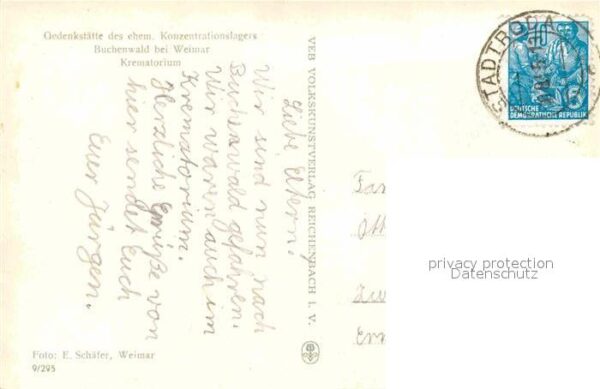 Gedenkstätte des ehem. Konzentrationslagers
Buchenwald bei Weimar
Krematorium
Liebe Eltern!
Wir sind nun nach
Buchawald gefahren.
Wir waren auch im
Krematorium.
Herzliche Grüße von
hier sendet Euch
Euer Jürgen.
Foto: E. Schäfer, Weimar
9/295
VEB VOLKSKUNSTVERLAG REICHENBACH I. V.
STADTRODA
10
DEUTSCHE
DEMOKRATISCHE REPUBLIK
Fam
privacy protection
Datenschutz